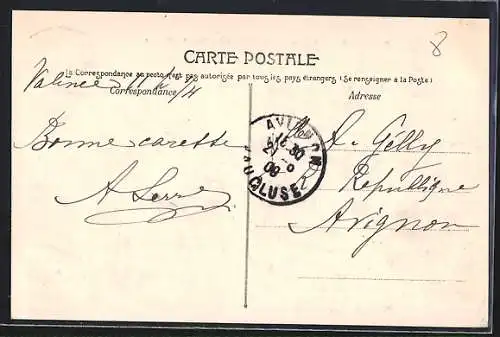 8
CARTE POSTALE
La Correspondance au recto n'est pas autorisée par tous les pays étrangers (Se renseigner à la Poste)
Valence
Correspondance
Adresse
Bonne caresse
D. Gélly
République
Avignon
A
AVIGNON
16 30
09
VAUCLUSE